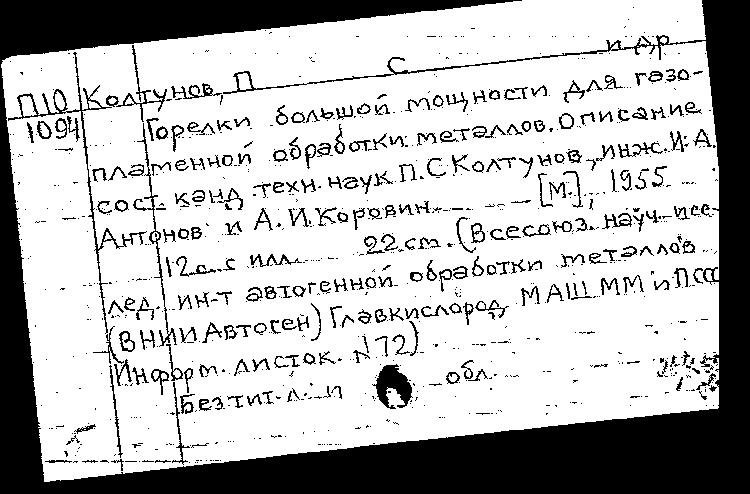 П10 Колтунов, П С и др
1094 Горелки большой мощности для газо-
пламенной обработки металлов. Описание
сост. канд. техн. наук П.С Колтунов, инж. И.А.
Антонов и А.И. Коровин. [М.], 1955
12 с. с илл. 22 см. (Всесоюз. науч-иссе-
лед. ин-т автогенной обработки металлов
(ВНИИАвтоген) Главкислород МАШ ММ и П СССР
Информ. листок. N 72)
Без тит. л. и обл.